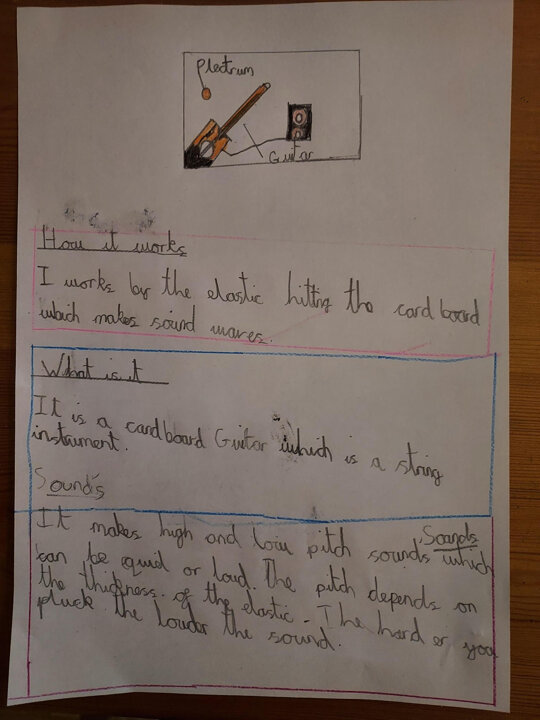 Plectrum
Guitar
How it works
I works by the elastic hitting the cardboard
which makes sound waves.
What is it
It is a cardboard Guitar which is a string
instrument.
Sounds
Sounds
It makes high and low pitch sounds which
can be quid or loud. The pitch depends on
the thickness of the elastic. The hard er you
pluck the louder the sound.